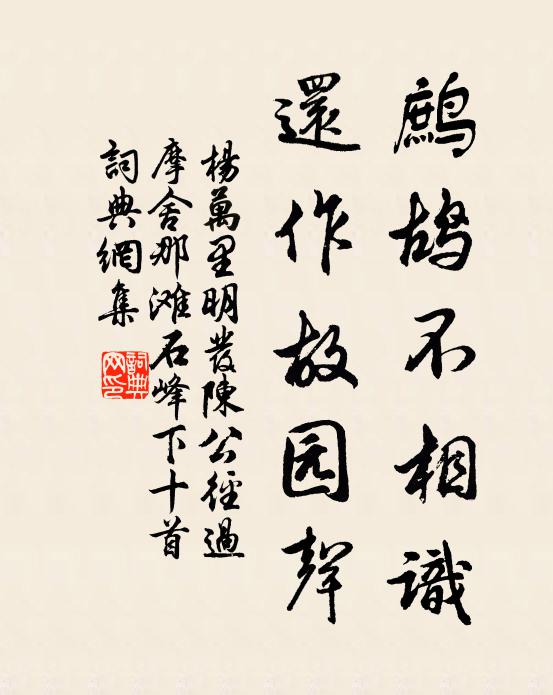 鷓鴣不相識
還作故园聲
楊萬里明發陳公徑過
摩舍那滩石峰下十首
詞典網集
詞典
网印